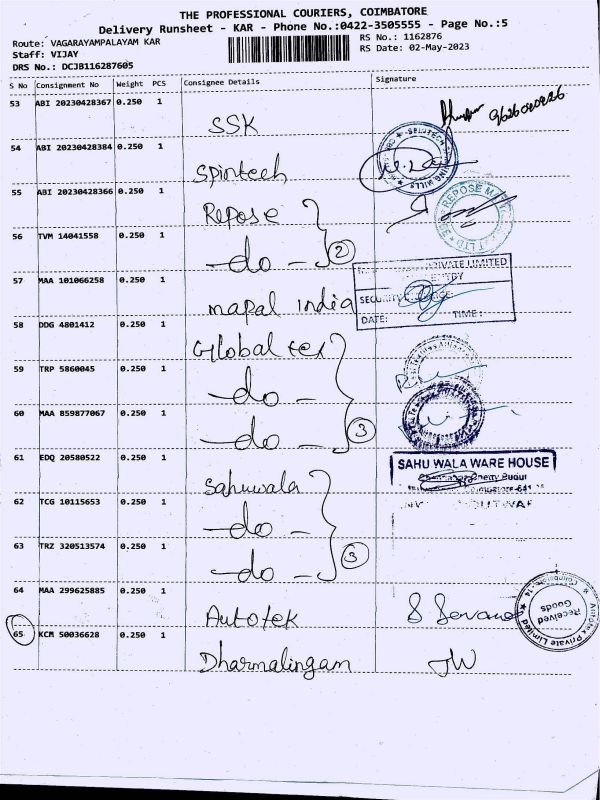 THE PROFESSIONAL COURIERS, COIMBATORE
Delivery Runsheet - KAR - Phone No.:0422-3505555 - Page No.:5
Route: VAGARAYAMPALAYAM KAR
Staff: VIJAY
DRS No.: DCJB116287605
RS No.: 1162876
RS Date: 02-May-2023
S No Consignment No Weight PCS Consignee Details Signature
53 ABI 20230428367 0.250 1 SSK 9626080826
54 ABI 20230428384 0.250 1 Spintech
55 ABI 20230428366 0.250 1 Repose
56 TVM 14041558 0.250 1 -do- 2
57 MAA 101066258 0.250 1 mapal india
58 DDG 4801412 0.250 1 Global tex
59 TRP 5860045 0.250 1 -do-
60 MAA 859877067 0.250 1 -do- 3
61 EDQ 20580522 0.250 1 Sahuwala
62 TCG 10115653 0.250 1 -do-
63 TRZ 320513574 0.250 1 -do- 3
64 MAA 299625885 0.250 1 Autotek
65 KCM 50036628 0.250 1 Dharmalingam
PRIVATE LIMITED
DATE: TIME:
SAHU WALA WARE HOUSE
Received
Goods
Private Limited